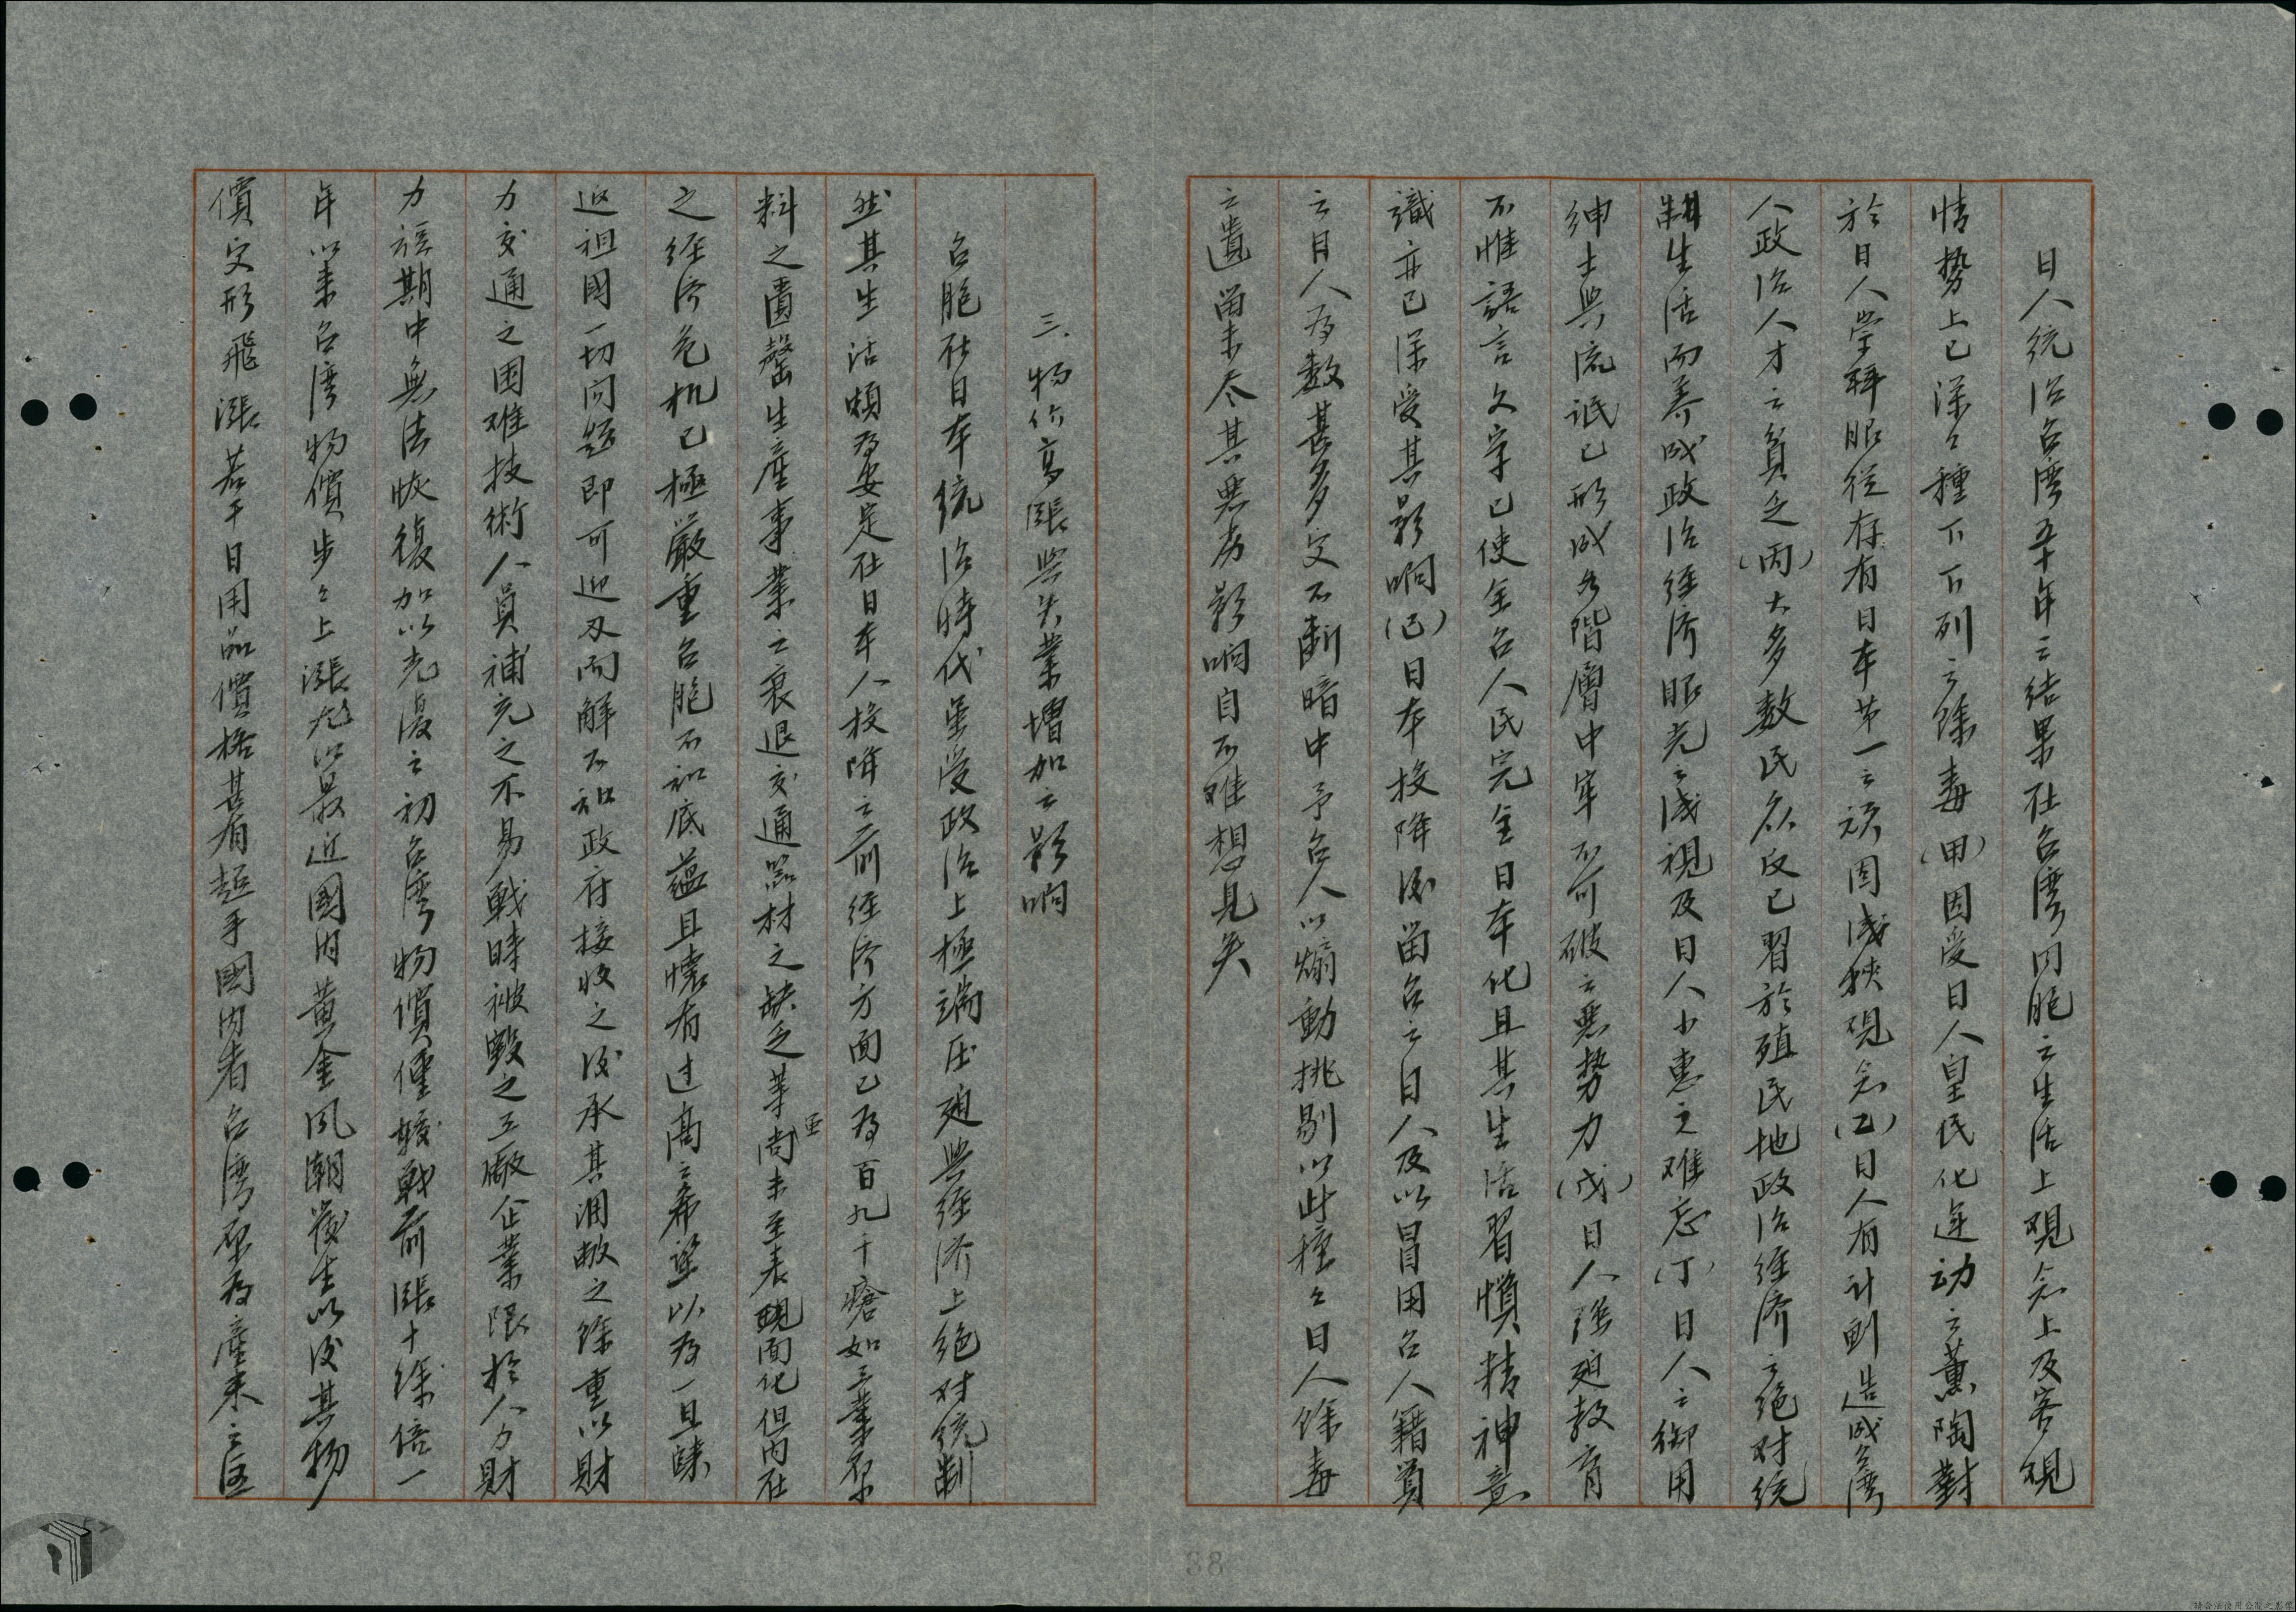 日人統治台湾五十年之结果在台湾同胞之生活上观念上及客观
情势上已深々種下下列之餘毒(甲)因受日人皇民化运动之薰陶對
於日人崇拜服從存有日本第一之顽固浅狹观念(乙)日人有计劃造成台湾
人政治人才之貧乏(丙)大多数民众反已習於殖民地政治经济之绝对统
制生活而养成政治经济眼光之浅視及日人小惠之难忘(丁)日人之御用
绅士與流氓已形成各階層中牢不可破之悪势力(戊)日人强廹教育
不惟語言文字已使全台人民完全日本化且其生活習慣精神意
識亦已深受其影响(己)日本投降后留台之日人及以冒用台人籍貫
之日人为数甚多又不断暗中予台人以煽動挑剔以此種々日人餘毒
之遺留未尽其悪劣影响自不难想見矣
三.物价高漲與失業增加之影响
台胞在日本统治時代虽受政治上極端压廹與经济上绝对统制
然其生活頗为安定在日本人投降之前经济方面已为百孔千瘡如工業原
料之匱罄生産事業之衰退交通器材之缺乏等尚未至表面化但内在
之经济危机已極嚴重台胞不知底蕴且懐有过高之希望以为一旦歸
返祖國一切问题即可迎刃而解不知政府接收之后承其凋敝之餘重以財
力交通之困难技術人員補充之不易戰時被毁之工廠企業限於人力財
力短期中無法恢復加以光復之初台湾物價僅較戰前漲十餘倍一
年以来台湾物價步々上漲尤以最近國内黄金风潮發生以後其物
價又形飛漲若干日用品價格甚有超乎國内者台湾原为産米之區
38